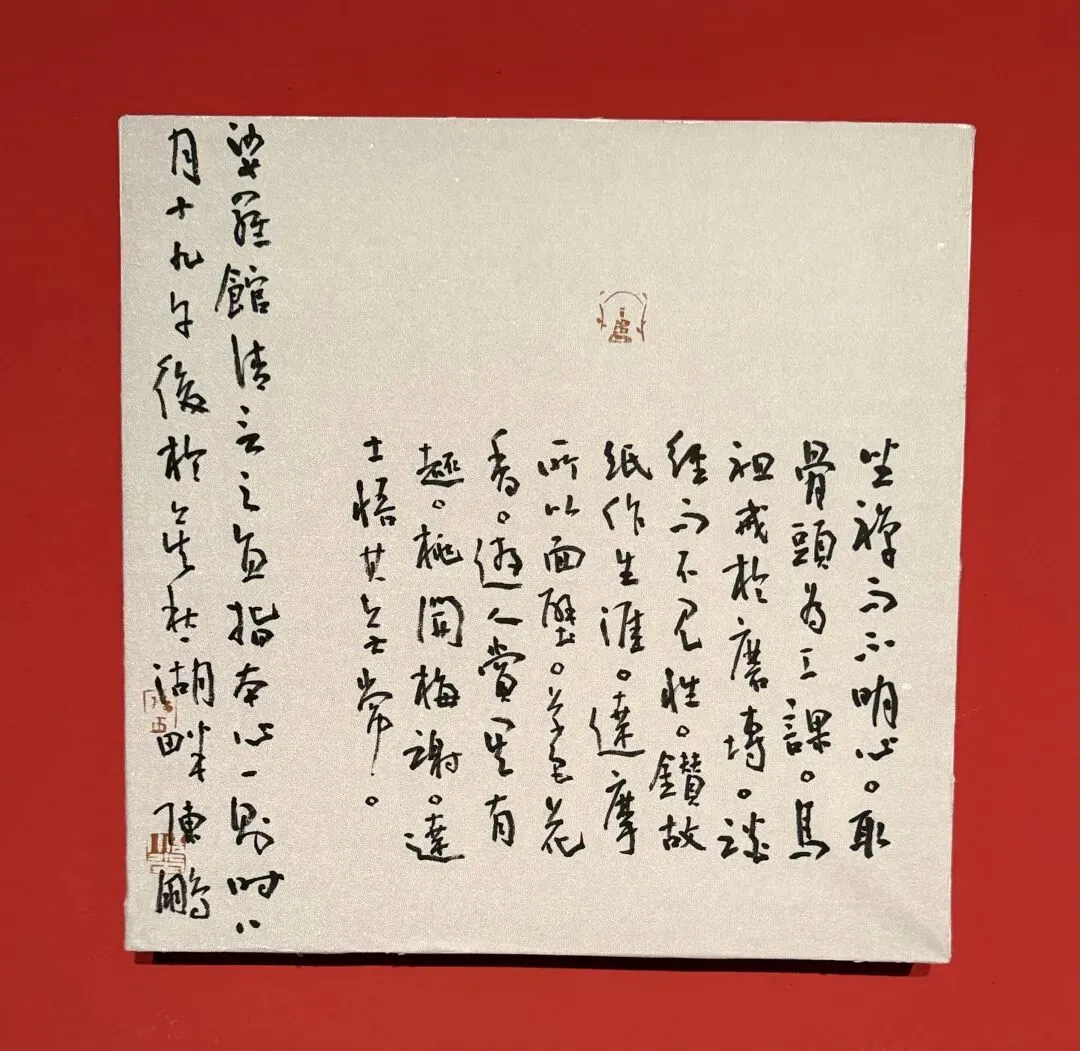 坐禪而不明心。取
骨頭為工課。馬
祖戒於磨塼。談
經而不見性。鑽故
紙作生涯。達摩
所以面壁。草色花
香。遊人賞其有
趣。桃開梅謝。達
士悟其無常。
娑羅館清言之直指本心一則時八
月十九午後於湖畔陳鵬